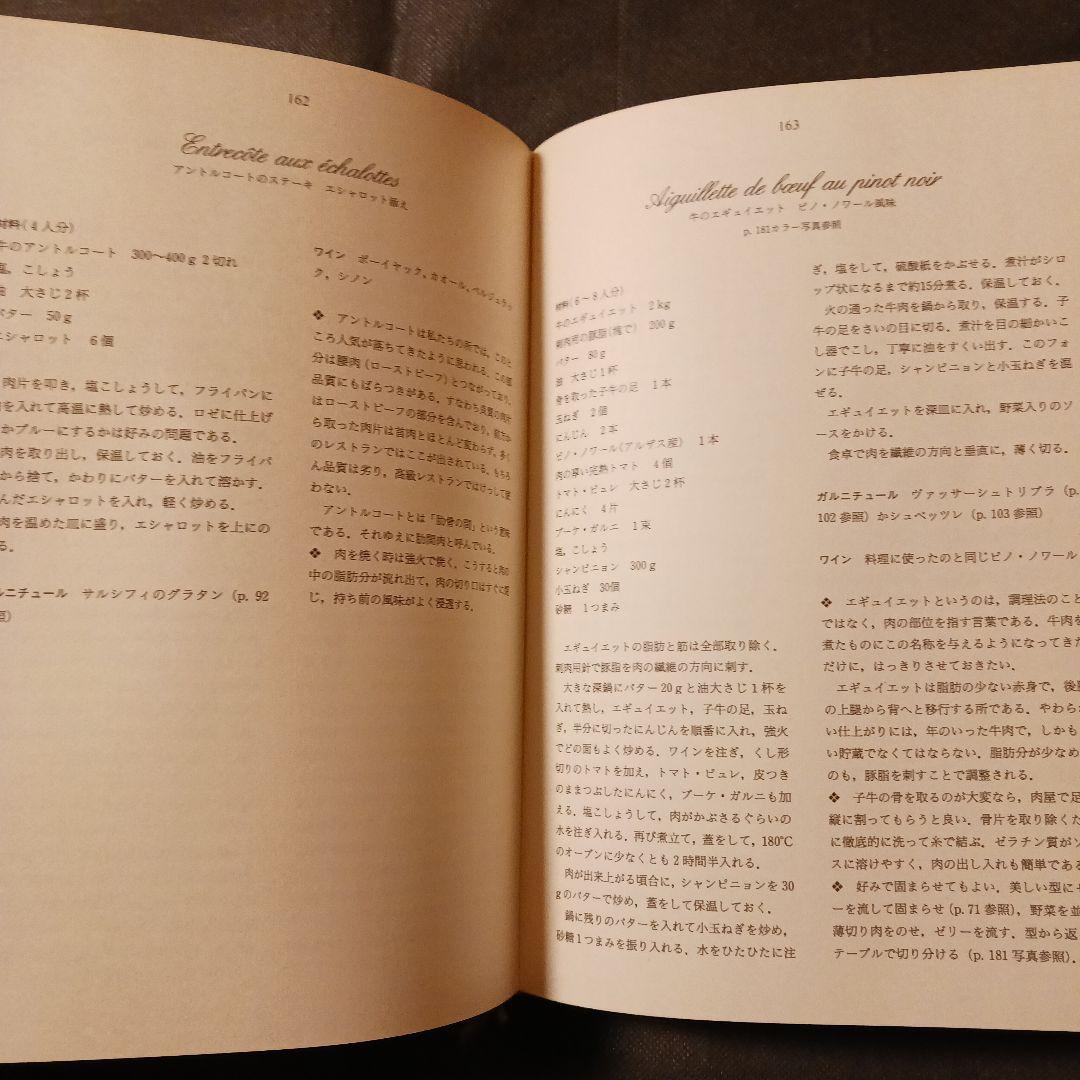 162
Entrecôte aux échalottes
アントルコートのステーキ　エシャロット添え
材料(4人分)
牛のアントルコート　300〜400g 2切れ
塩，こしょう
油　大さじ2杯
バター　50g
エシャロット　6個
肉片を叩き，塩こしょうして，フライパンに
を入れて高温に熱して炒める．ロゼに仕上げ
かブルーにするかは好みの問題である．
肉を取り出し，保温しておく．油をフライパ
から捨て，かわりにバターを入れて溶かす．
んだエシャロットを入れ，軽く炒める．
肉を温めた皿に盛り，エシャロットを上にの
る．
ルニチュール　サルシフィのグラタン（p. 92
ワイン　ポーイヤック，カオール，ベルジュラッ
ク，シノン
❖　アントルコートは私たちの所では，このと
ころ人気が落ちてきたように思われる．この部
分は腰肉（ローストビーフ）とつながっており，
品質にもばらつきがある．すなわち良質の肉片
はローストビーフの部分を含んでおり，前方か
ら取った肉片は首肉とほとんど変わらず，多く
のレストランではここが出されている．もちろ
ん品質は劣り，高級レストランではけっして使
わない．
アントルコートとは「肋骨の間」という意味
である．それゆえに肋間肉と呼んでいる．
❖　肉を焼く時は強火で焼く．こうすると肉の
中の脂肪分が流れ出て，肉の切り口はすぐに閉
じ，持ち前の風味がよく浸透する．
163
Aiguillette de bœuf au pinot noir
牛のエギュイエット　ピノ・ノワール風味
p. 181カラー写真参照
材料(6〜8人分)
牛のエギュイエット　2kg
刺肉用の豚脂(塊で)　200g
バター　80g
油　大さじ1杯
骨を取った子牛の足　1本
玉ねぎ　2個
にんじん　2本
ピノ・ノワール(アルザス産)　1本
肉の厚い完熟トマト　4個
トマト・ピュレ　大さじ2杯
にんにく　4片
ブーケ・ガルニ　1束
塩，こしょう
シャンピニョン　300g
小玉ねぎ　30個
砂糖　1つまみ
エギュイエットの脂肪と筋は全部取り除く．
刺肉用針で豚脂を肉の繊維の方向に刺す．
大きな深鍋にバター20gと油大さじ1杯を
入れて熱し，エギュイエット，子牛の足，玉ね
ぎ，半分に切ったにんじんを順番に入れ，強火
でどの面もよく炒める．ワインを注ぎ，くし形
切りのトマトを加え，トマト・ピュレ，皮つき
のままつぶしたにんにく，ブーケ・ガルニも加
える．塩こしょうして，肉がかぶさるぐらいの
水を注ぎ入れる．再び煮立て，蓋をして，180℃
のオーブンに少なくとも2時間半入れる．
肉が出来上がる頃合に，シャンピニョンを30
gのバターで炒め，蓋をして保温しておく．
鍋に残りのバターを入れて小玉ねぎを炒め，
砂糖1つまみを振り入れる．水をひたひたに注
ぎ，塩をして，硫酸紙をかぶせる．煮汁がシロ
ップ状になるまで約15分煮る．保温しておく．
火の通った牛肉を鍋から取り，保温する．子
牛の足をさいの目に切る．煮汁を目の細かいこ
し器でこし，丁寧に油をすくい出す．このフォ
ンに子牛の足，シャンピニョンと小玉ねぎを混
ぜる．
エギュイエットを深皿に入れ，野菜入りのソ
ースをかける．
食卓で肉を繊維の方向と垂直に，薄く切る．
ガルニチュール　ヴァッサーシュトリブラ（p.
102 参照）かシュペッツレ（p. 103 参照）
ワイン　料理に使ったのと同じピノ・ノワール
❖　エギュイエットというのは，調理法のこと
ではなく，肉の部位を指す言葉である．牛肉を
煮たものにこの名称を与えるようになってきた
だけに，はっきりさせておきたい．
エギュイエットは脂肪の少ない赤身で，後
の上腿から背へと移行する所である．やわらか
い仕上がりには，年のいった牛肉で，しかも
い貯蔵でなくてはならない．脂肪分が少なめ
のも，豚脂を刺すことで調整される．
❖　子牛の骨を取るのが大変なら，肉屋で足
縦に割ってもらうと良い．骨片を取り除くた
に徹底的に洗って糸で結ぶ．ゼラチン質がソ
スに溶けやすく，肉の出し入れも簡単である
❖　好みで固まらせてもよい．美しい型に
ーを流して固まらせ（p. 71 参照），野菜を並
薄切り肉をのせ，ゼリーを流す．型から返
テーブルで切り分ける（p. 181 写真参照）．